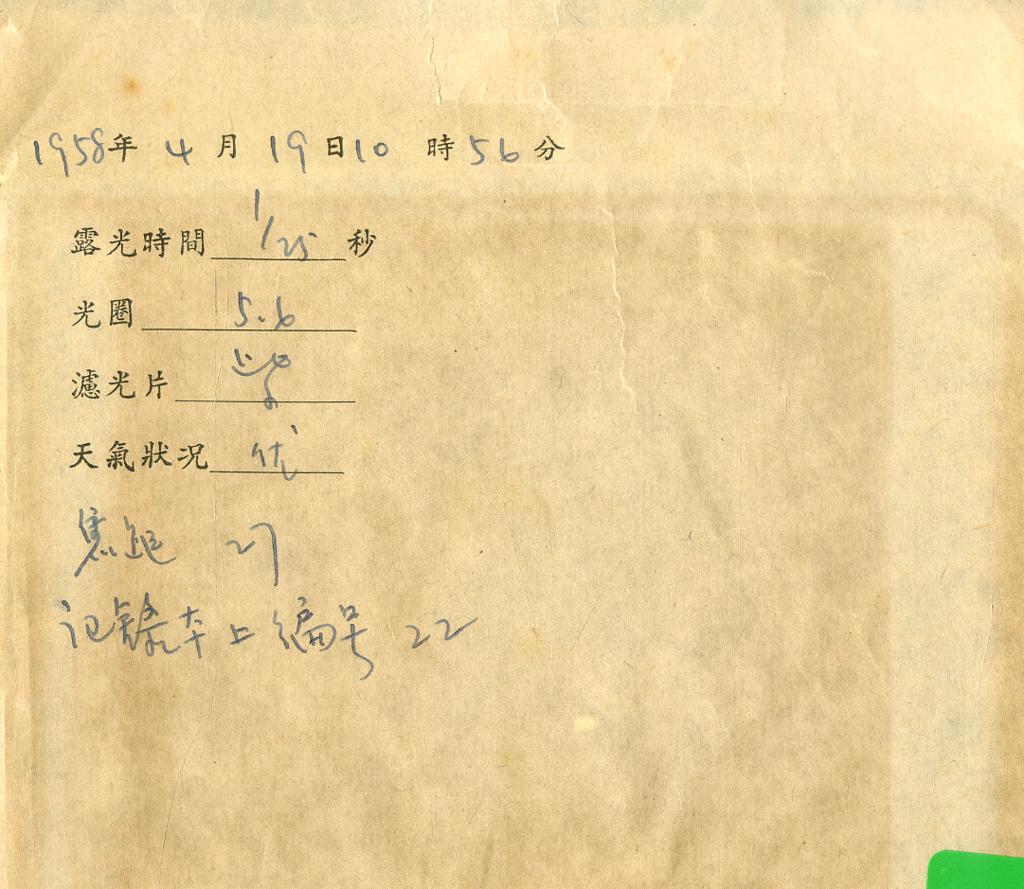 1958年 4 月 19 日 10 時 56 分
露光時間 1/25 秒
光圈 5.6
濾光片
天氣狀况 优
焦距 27
记錄本上编号 22